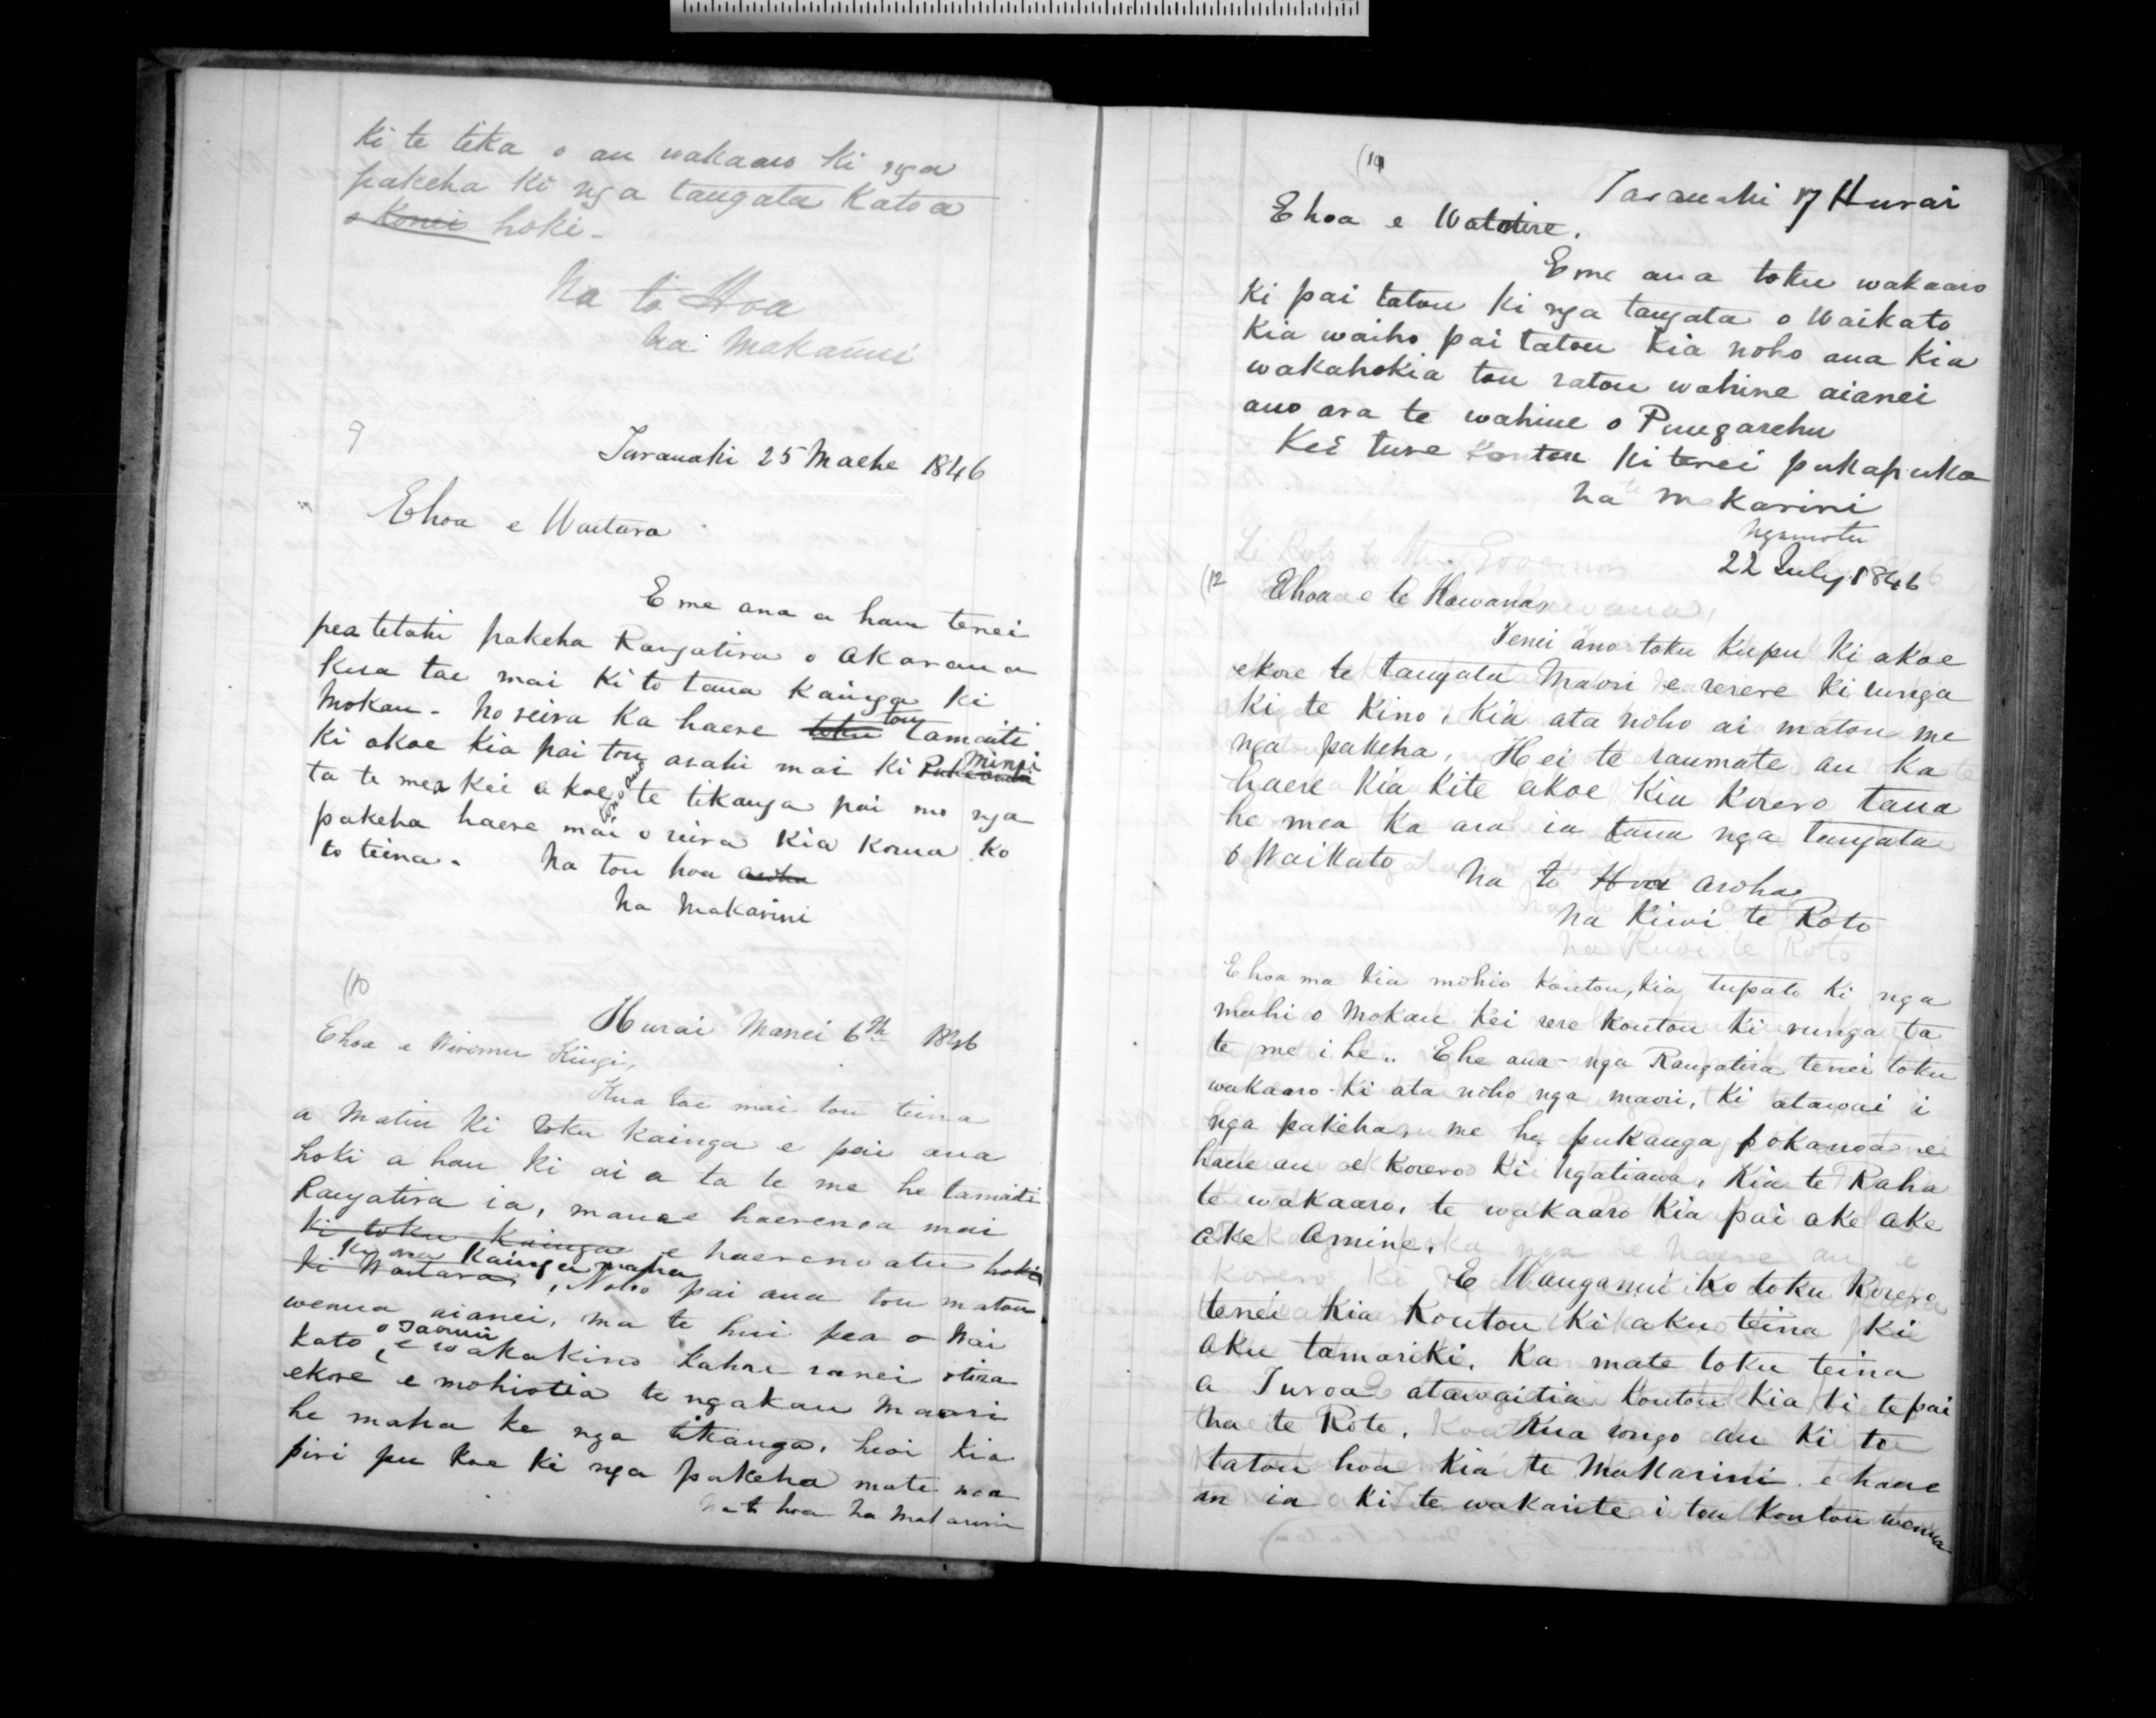 Ki te tika o au wakaaro ki nga
pakeha ki nga tangata Katoa
o Konei hoki -
Na to Hoa
Na Makarini
9
Taranaki 25 Maehe 1846
Ehoa e Waitara
E mea ana a hau tenei
pea tetahi pakeha Rangatira o Akarana
kua tae mai ki to taua Kainga ki
Mokau - No reira ka haere toku tou tamaiti
ki akoe kia pai tou arahi mai ki
ta te mea kei a koe te tikanga pai mo nga
pakeha haere mai o reira kia korua ko
to teina. Na tou hoa aroha
Na Makarini
(10
Hurai Manei 6th 1846
Ehoa e Wiremu Kingi,
Kua tae mai tou teina
a Matiu ki toku Kainga e pai ana
hoki a hau ki ai a ta te me he tamaiti
Rangatira ia, mana e haerenoa mai
ki toku Kainga e haerenoa atu hoki
ki ona Kainga maha
ki Waitara, Noho pai ana tou matou
wenua aianei, ma te hui pea o Wai
kato e wakakino kahore ranei otira
ekore e mohiotia te ngakau Maori
he maha ke nga tikanga, heoi kia
piri pu koe ki nga pakeha mate noa
Na to hoa Na Makarini
(11
Taranaki 17 Hurai
Ehoa e
E mea ana toku wakaaro
Ki pai tatou ki nga tangata o Waikato
Kia waiho pai tatou kia noho ana kia
wakahokia tou ratou wahine aianei
ano ara te wahine o Pungarehu
Kei ture koutou ki tenei pukapuka
Na te Makarini
Ngamotu
22 July 1846
(12
Te Roto to the Governor
Ehoa e te Kawana
Tenei ano toku kupu ki akoe
ekore te tangata Maori e rerere ki runga
ki te Kino, kia ata noho ai matou me
nga pakeha, Hei te raumate au ka
haere kia kite akoe kia korero taua
he mea ka ara ia taua nga tangata
o Waikato
Na to Hoa aroha
Na Kiwi te Roto
Ehoa ma kia mohio koutou, kia tupato ki nga
mahi o Mokau kei rere koutou ki runga ta
te me i he.. Ehe ana nga Rangatira tenei toku
wakaaro ki ata noho nga maori, ki atawai i
nga pakeha, me he pukanga pokanoa nei
haere au e korero ki Ngatiawa, Kia te Raha
te wakaaro, te wakaaro kia pai ake ake
ake Amine.
E Wanganui ko toku Korero
tenei kia koutou ki aku teina ki
aku tamariki. Ka mate toku teina
a Turoa atawaitia koutou kia ki te pai
na te Roto. Kua rongo au ki to
tatou hoa kia te Makarini e haere
an ia ki te wakarite i tou koutou wenua